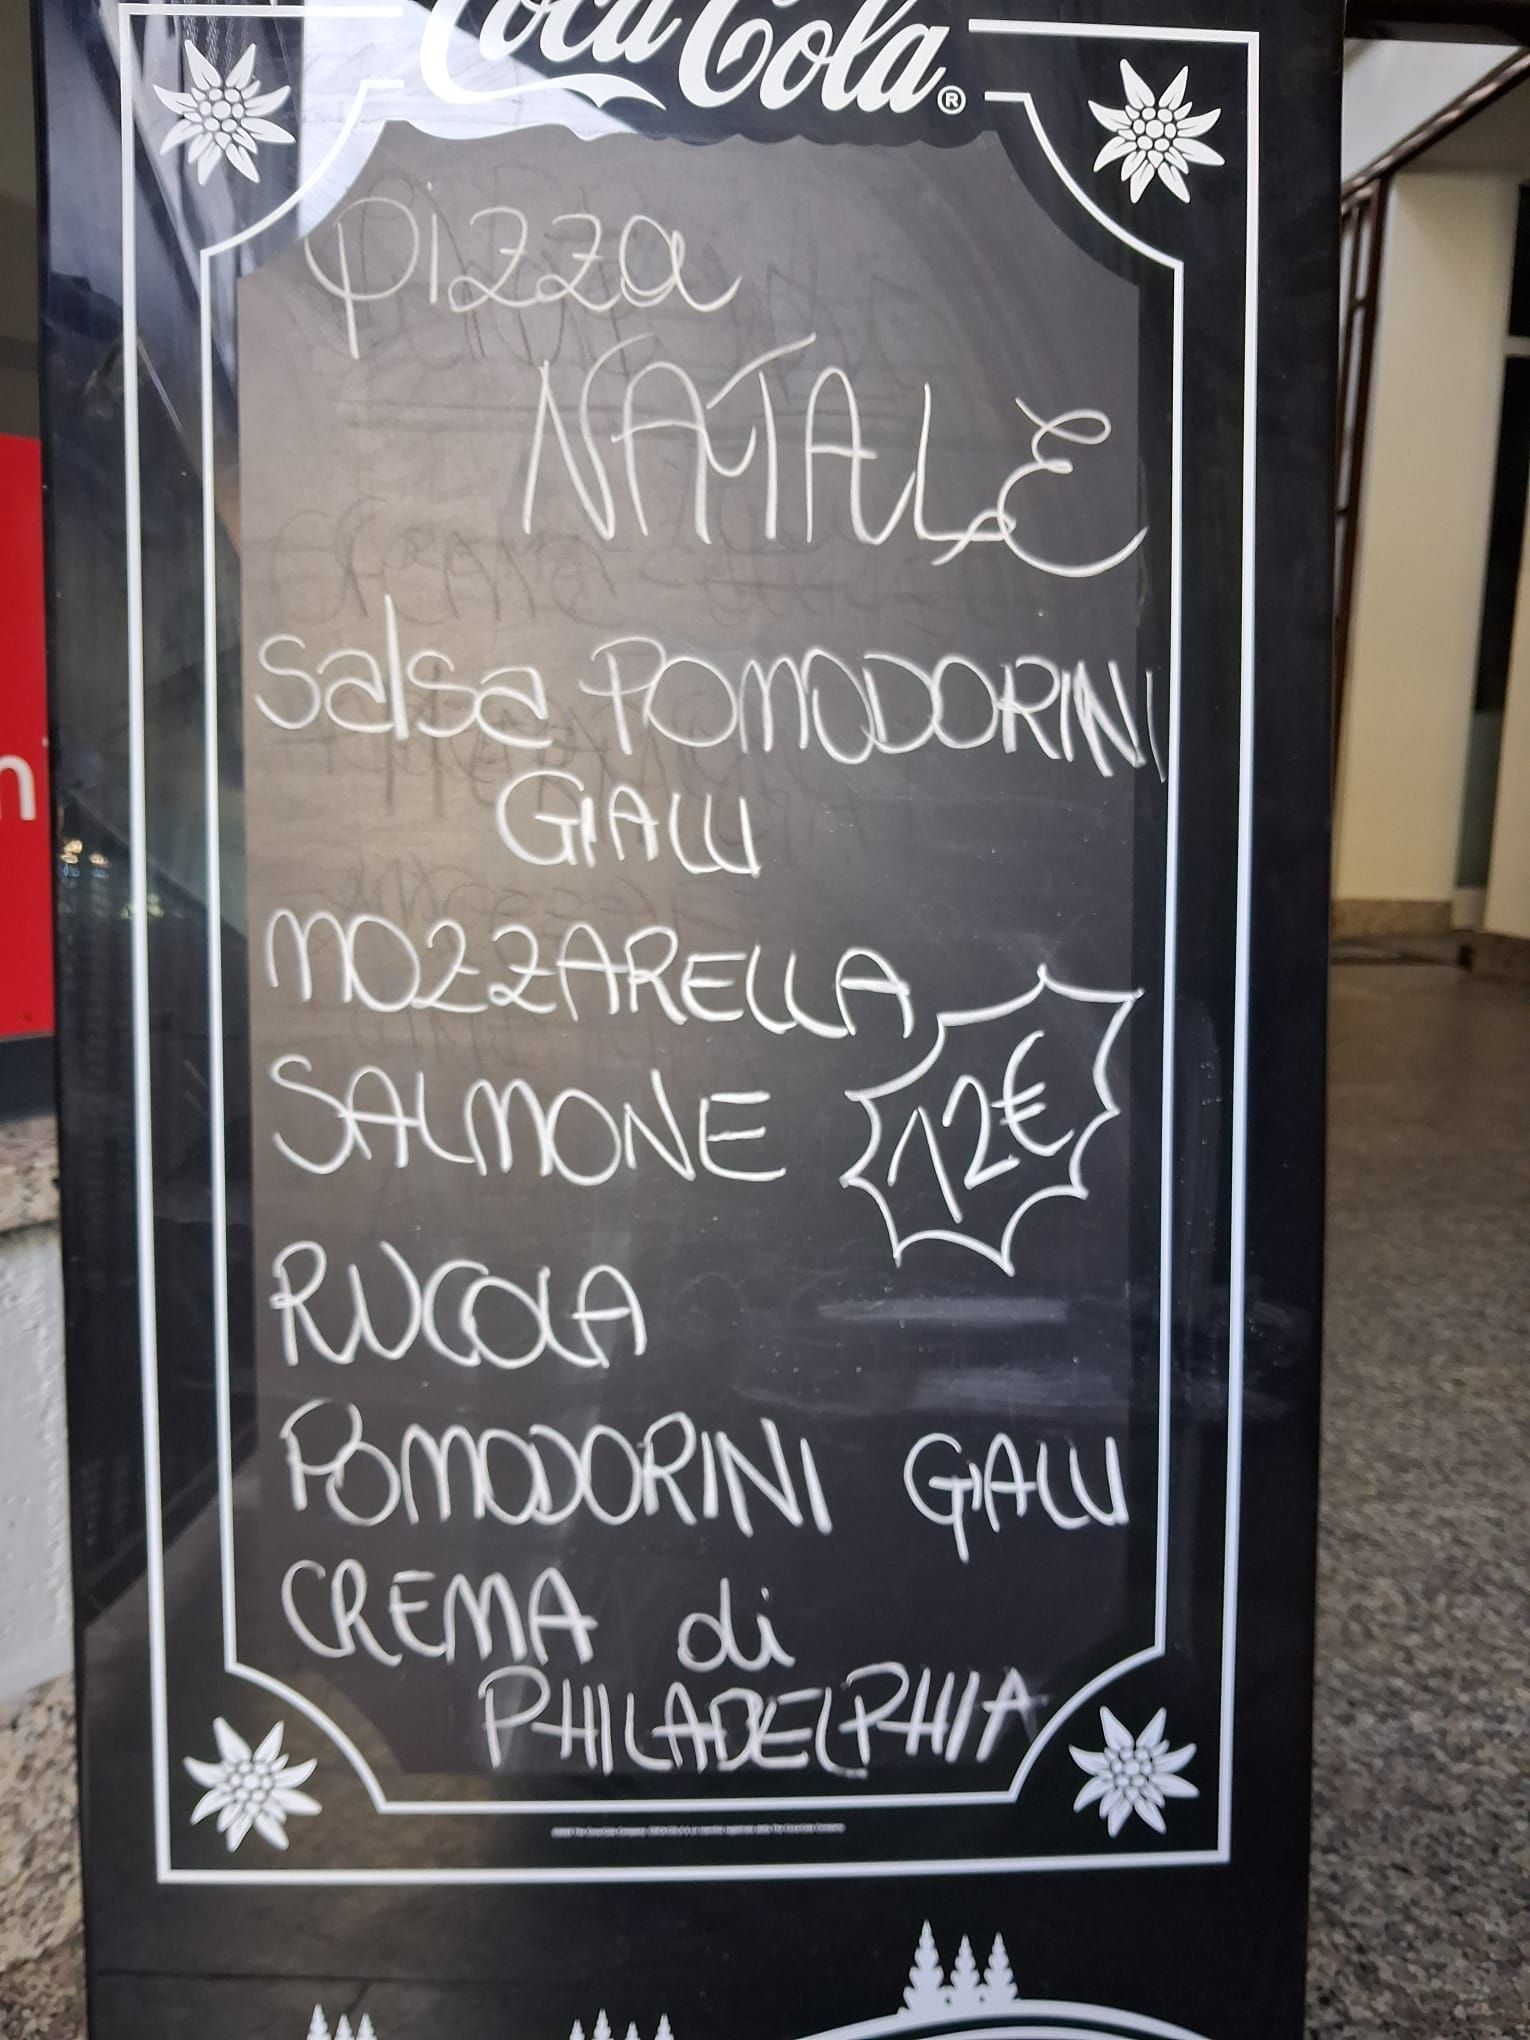 Coca-Cola®
Pizza
NATALE
Salsa POMODORINI
GIALLI
MOZZARELLA
SALMONE 12€
RUCOLA
POMODORINI GIALLI
CREMA di
PHILADELPHIA